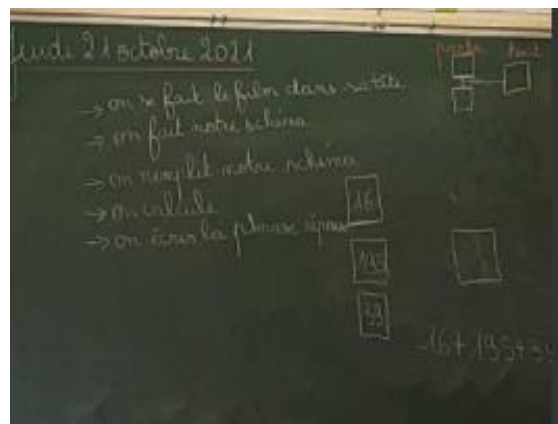 jeudi 21 octobre 2021
partie tout
→ on se fait le film dans sa tête
→ on fait notre schéma
→ on remplit notre schéma
→ on calcule
→ on écris la phrase réponse
16
195
39
16+195+3